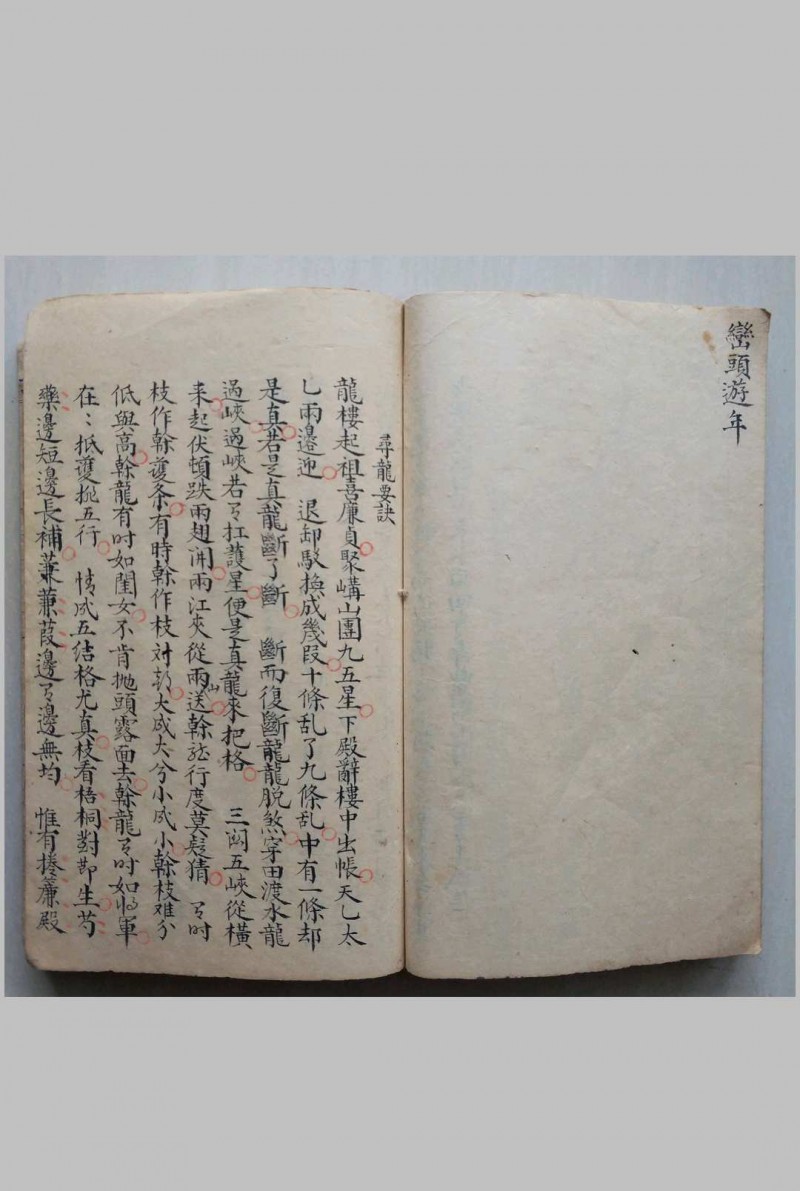 巒頭遊年
尋龍要訣
龍樓起祖喜廉貞聚嵵山團九五星下殿辭樓中出帳天乚太
乚兩邉迎 退卸駁換成幾段十條乱了九條乱中有一條却
是真若是真龍斷了斷 斷而復斷龍龍脫煞穿田渡水龍
過峽過峽若有扛護星便是真龍來把格 三關五峽從橫
来起伏頓跌兩翅開兩江夾從兩山送榦龙行度莫疑猜 有时
枝作榦䕶条有時榦作枝対大成大兮小成小榦枝难分
低與高榦龍有时如閨女不肯抛頭露面去榦龍有时如将軍
在：抵䕶挑五行 情成五结格尤真枝看梧桐對节生芍
藥邉短邉長補蒹蒹葭邉有邉無均 惟有捲簾殿